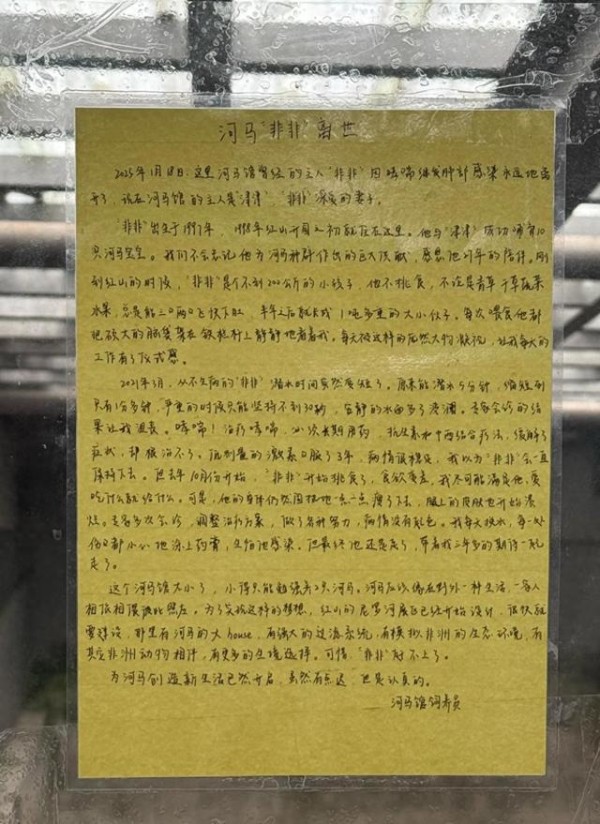 河马“非非”离世
2025年1月18日,这里河马馆曾经的主人“非非”因哮喘继发肺部感染永远地离
开了,现在河马馆的主人是“津津”,“非非”深爱的妻子。
“非非”出生于1997年,1998年红山开园之初就住在这里。他与“津津”成功哺育10
只河马宝宝。我们不会忘记他为河马种群作出的巨大贡献,感恩他27年的陪伴。刚
到红山的时候,“非非”是个不到200公斤的小孩子,他不挑食,不论是青草干草蔬菜
水果,总是能三口两口飞快下肚,半年之后就长成1吨多重的大小伙子。每次喂食他都
把硕大的脑袋靠在铁栏杆上静静地看着我。每天被这样的庞然大物凝视,让我每天的
工作有了仪式感。
2021年5月,从不生病的“非非”潜水时间突然变短了。原来能潜水5分钟,缩短到
只有1分多钟,严重的时候只能坚持不到30秒,平静的水面多了涟漪。专家会诊的结
果让我沮丧。哮喘!治疗哮喘,必须长期用药,抗生素和中西结合疗法,缓解了
症状,却根治不了。低剂量的激素口服了3年,病情很稳定,我以为“非非”会一直
保持下去。但去年10月份开始,“非非”开始挑食了,食欲变差,我不可能满足他,爱
吃什么就给什么。可是,他的身体仍然固执地一点一点瘦了下去,腿上的皮肤也开始溃
烂。专家多次会诊,调整治疗方案,做了各种努力,病情没有起色。我每天换水,每一处
伤口都小心地涂上药膏,生怕他感染。但最终他还是走了,带着我三年多的期待一起
走了。
这个河马馆太小了,小得只能勉强养2只河马。河马应该像在野外一样生活,一家人
相依相偎彼此照应。为了实现这样的梦想,红山的尼罗河展区已经开始设计,很快就
要建设,那里有河马的大house,有强大的过滤系统,有模拟非洲的生态环境,有
其它非洲动物相伴,有更多的生境选择。可惜,“非非”赶不上了。
为河马创造新生活已然开启,虽然有点迟,但是认真的。
河马馆饲养员